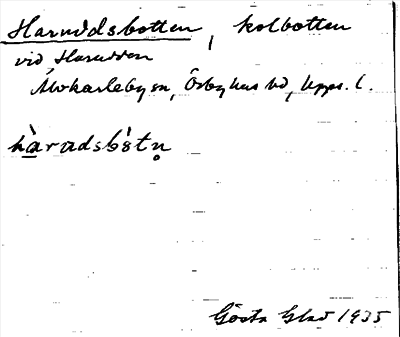 Haruddsbotten, kolbotten
vid Harudden
Älvkarleby sn, Örbyhus hd, Upps. l.
hàradsbòtn̥
Gösta Glad 1935